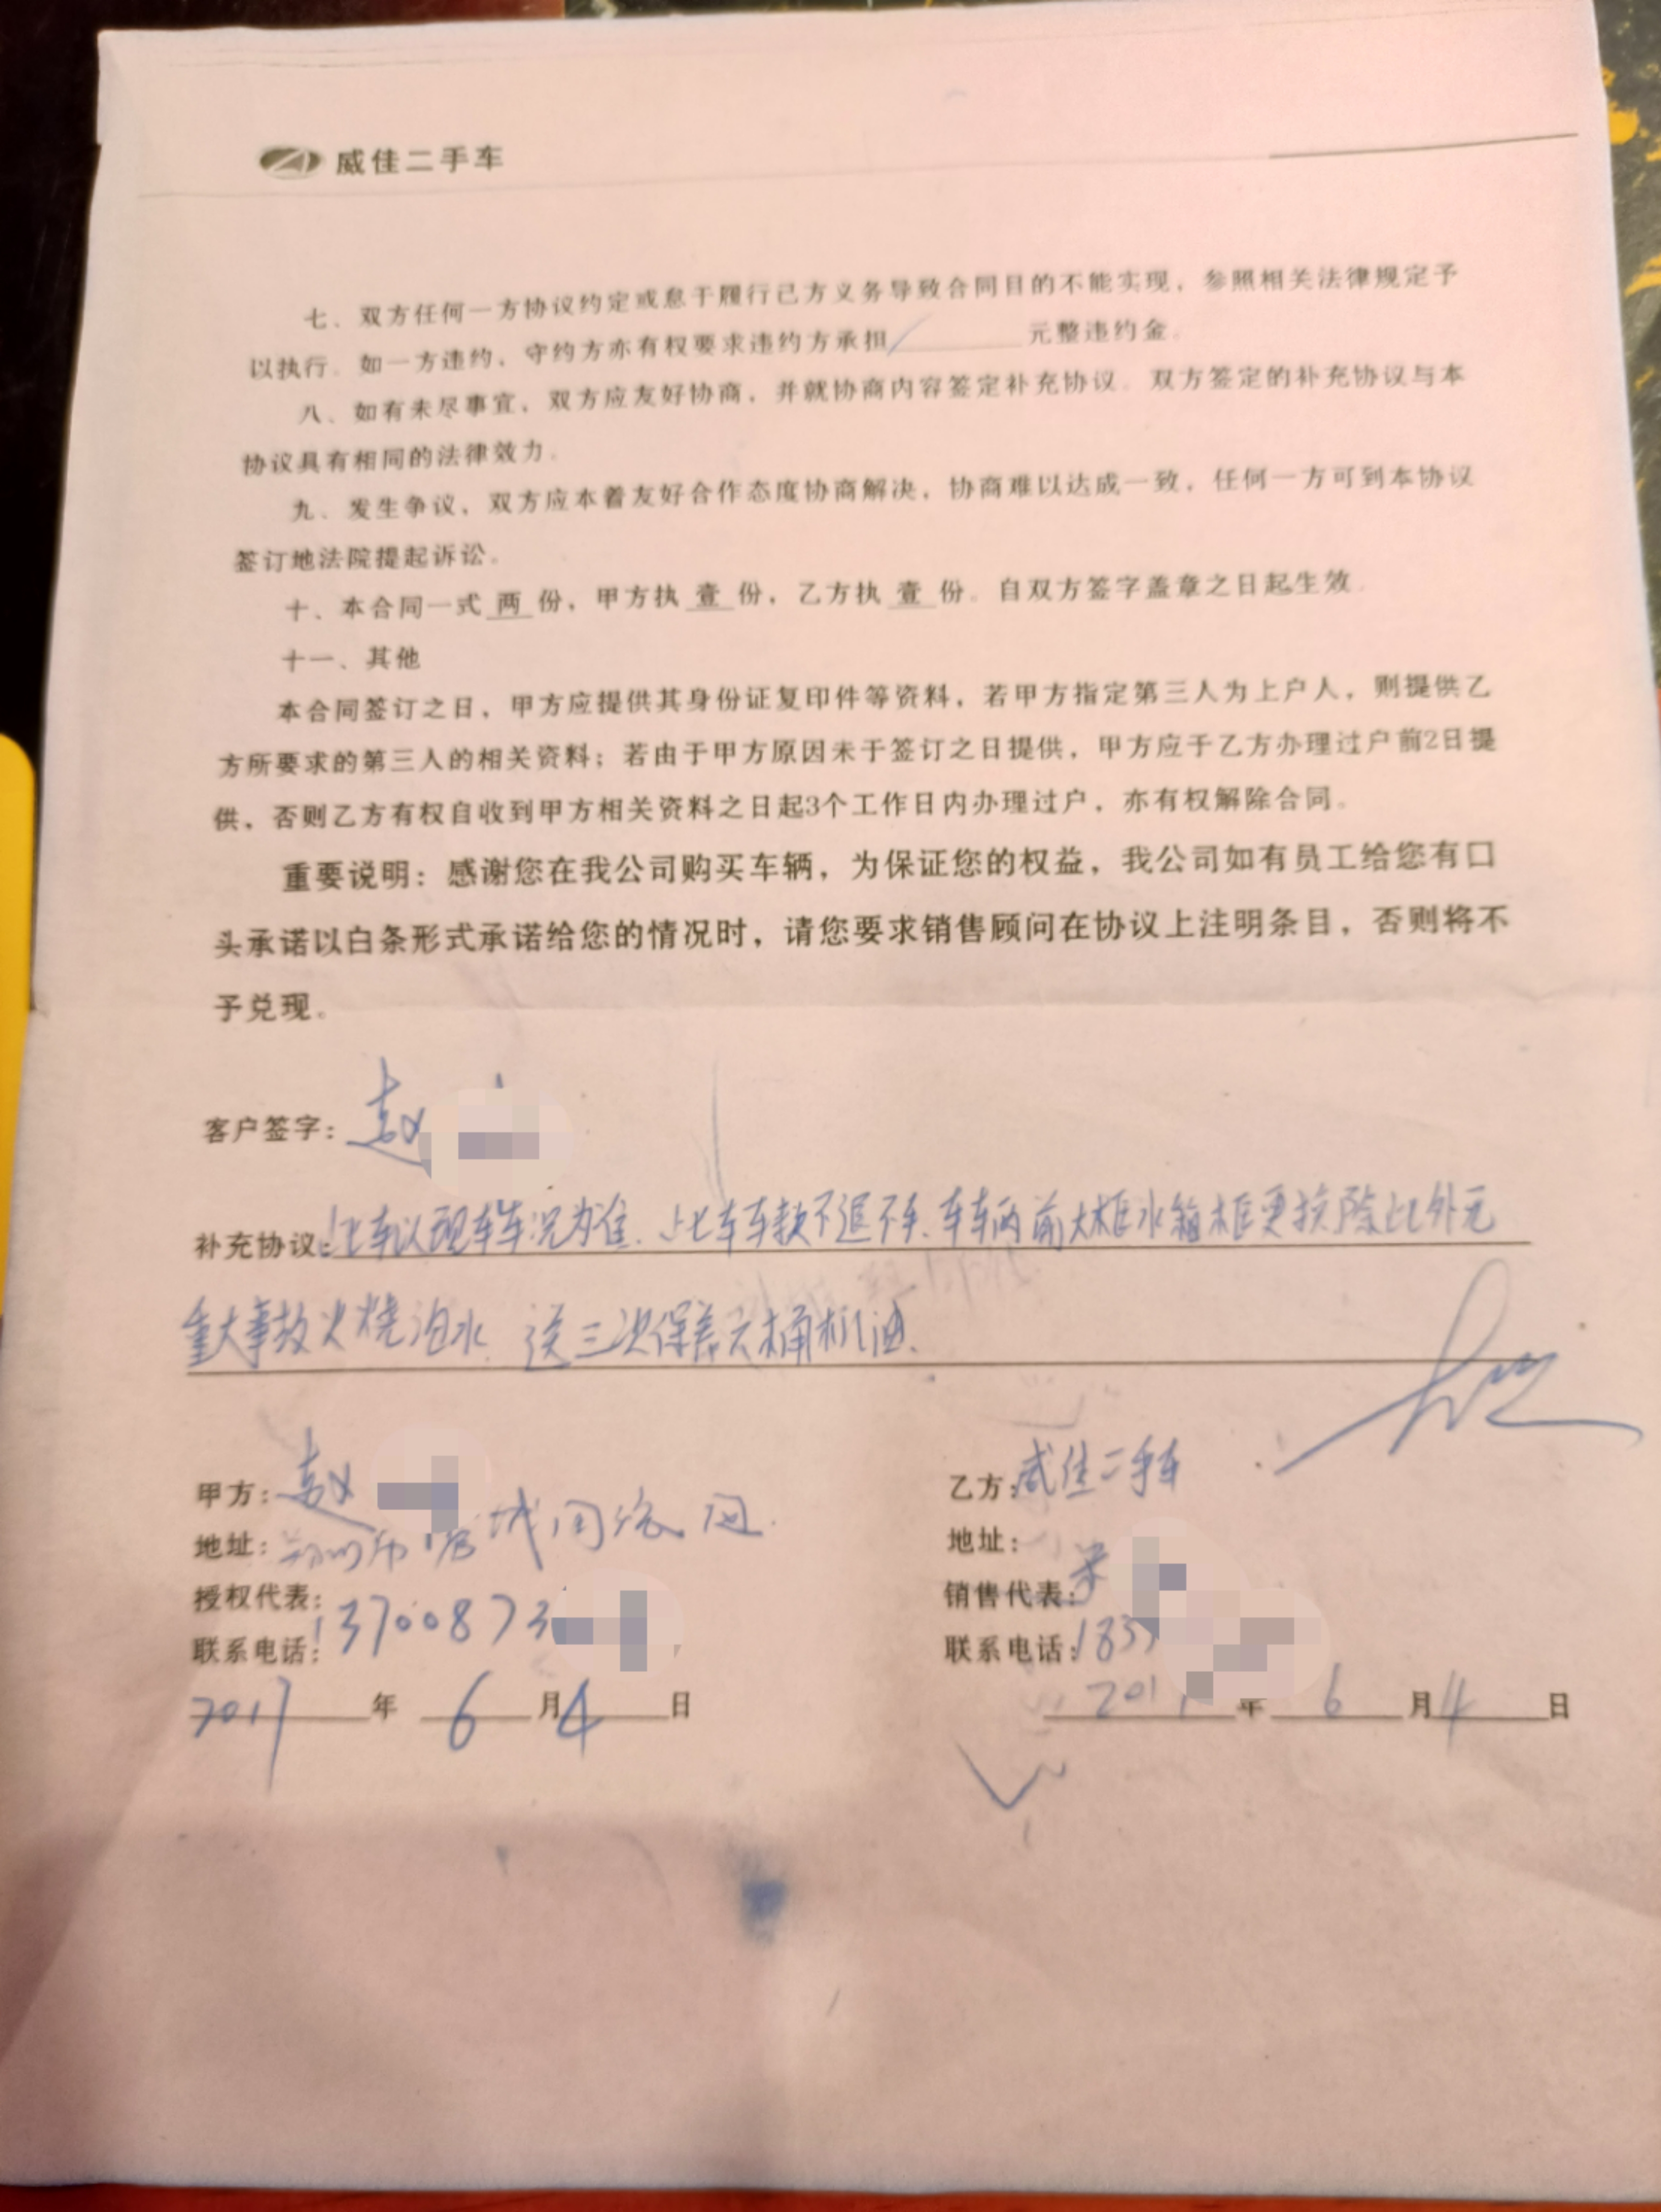 威佳二手车
七、双方任何一方协议约定或怠于履行己方义务导致合同目的不能实现，参照相关法律规定予
以执行。如一方违约，守约方亦有权要求违约方承担/元整违约金。
八、如有未尽事宜，双方应友好协商，并就协商内容签定补充协议。双方签定的补充协议与本
协议具有相同的法律效力。
九、发生争议，双方应本着友好合作态度协商解决，协商难以达成一致，任何一方可到本协议
签订地法院提起诉讼。
十、本合同一式 两 份，甲方执 壹 份，乙方执 壹 份。自双方签字盖章之日起生效。
十一、其他
本合同签订之日，甲方应提供其身份证复印件等资料，若甲方指定第三人为上户人，则提供乙
方所要求的第三人的相关资料；若由于甲方原因未于签订之日提供，甲方应于乙方办理过户前2日提
供，否则乙方有权自收到甲方相关资料之日起3个工作日内办理过户，亦有权解除合同。
重要说明：感谢您在我公司购买车辆，为保证您的权益，我公司如有员工给您有口
头承诺以白条形式承诺给您的情况时，请您要求销售顾问在协议上注明条目，否则将不
予兑现。
客户签字：赵
补充协议：此车以现车车况为准，此车车款不退不车，车车两前大框水箱框更换除此外无
重大事故火烧泡水，送三次保养六桶机油。
甲方：赵
乙方：威佳二手车
地址：郑州市管城回族区
地址：
授权代表：
销售代表：
联系电话：13700873
联系电话：183
2017年6月4日
201年6月4日